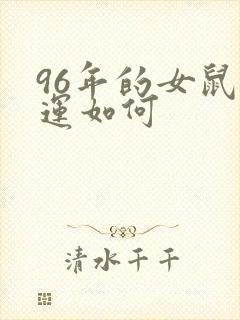 96年的女鼠
運如何
清水千千